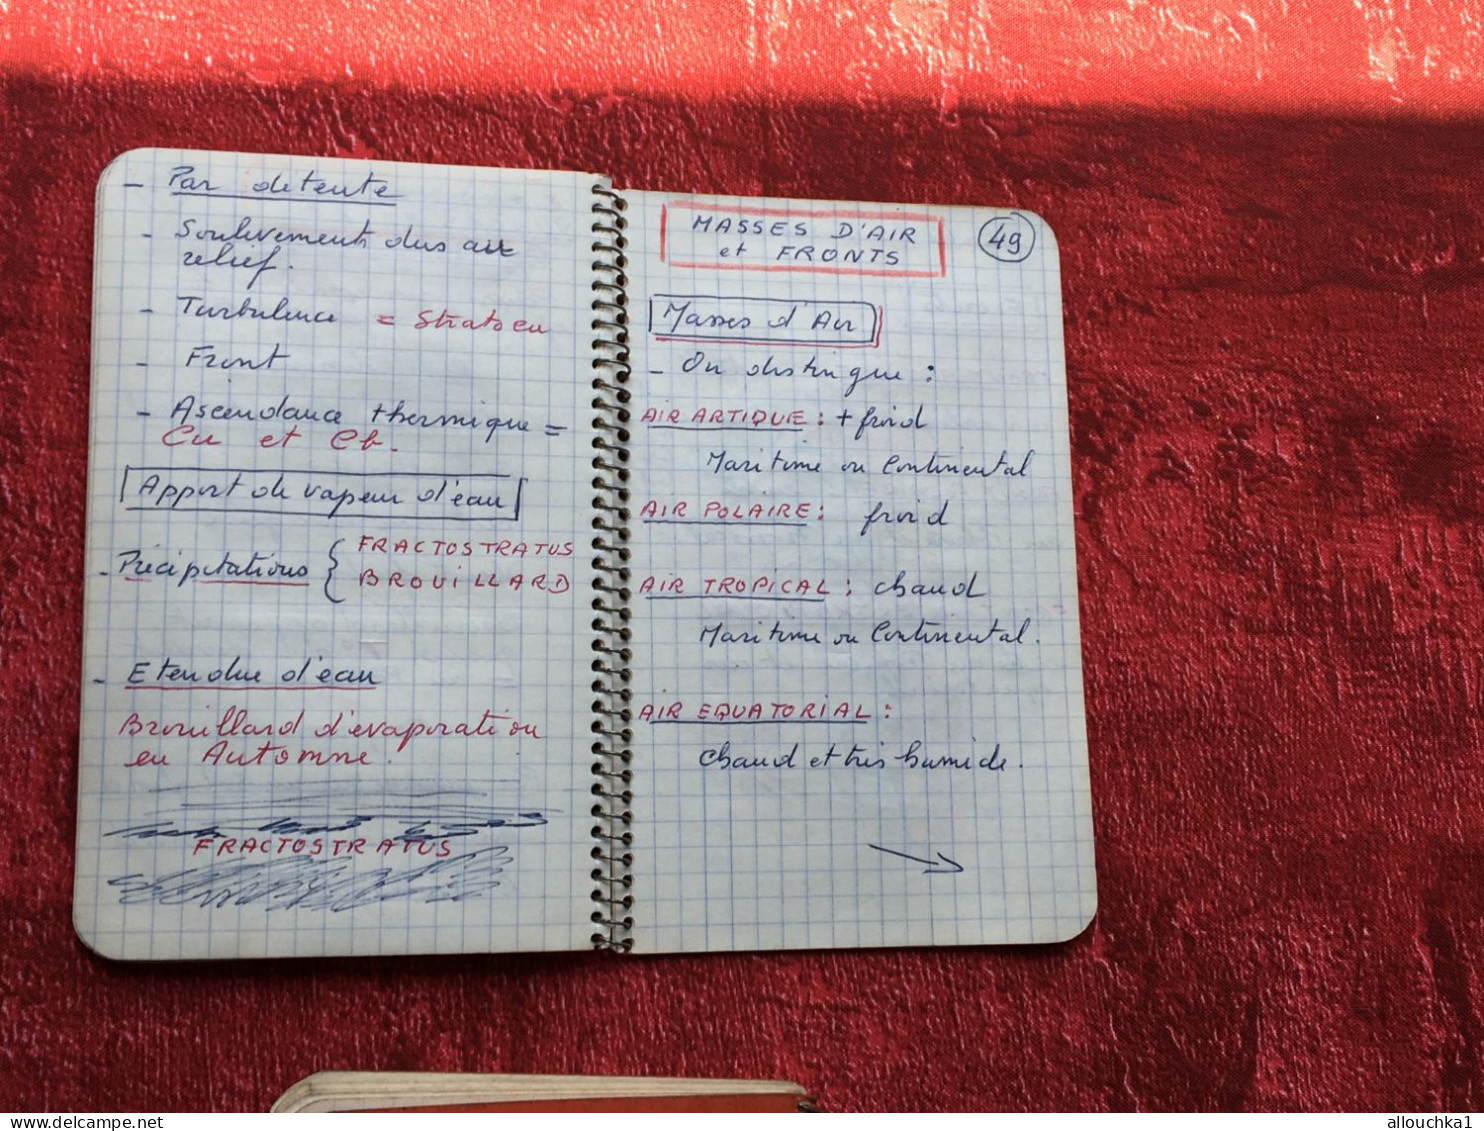 - Par detente
- Soulevements dus au
relief.
- Turbulence = Stratocu
- Front
- Ascendance thermique =
Cu et Cb.
Apport de vapeur d'eau
- Précipitations { FRACTOSTRATUS
BROUILLARD
- Etendue d'eau
Brouillard d'evaporation
en Automne.
FRACTOSTRATUS
MASSES D'AIR
et FRONTS
49
Masses d'Air
- On distingue :
AIR ARTIQUE : + froid
Maritime ou Continental
AIR POLAIRE : froid
AIR TROPICAL : chaud
Maritime ou Continental.
AIR EQUATORIAL :
chaud et très humide.
allouchka1